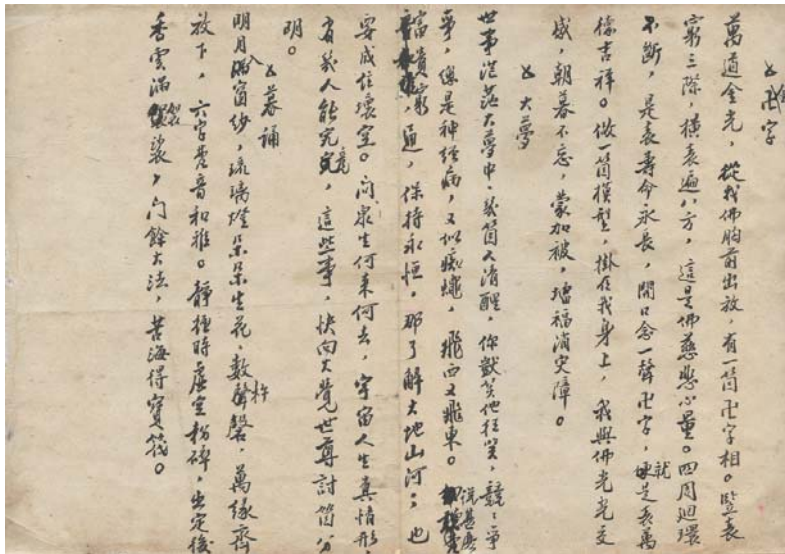 卍字
萬道金光，從我佛胸前出放，有一箇卍字相。豎表
窮三際，橫表遍八方，這是佛慈悲心量。四周迴環
不斷，是表壽命永長，開口念一聲卍字，就是表萬
德吉祥。做一箇模型，掛在我身上，我與佛光光交
感，朝暮不忘，蒙加被，增福消災障。
大夢
世事茫茫大夢中，幾箇人清醒，你獃笑他狂笑，競競爭
爭，總是神經病，又似癡蠅，飛西又飛東。說甚麼
富貴窮通，保持永恒，那了解大地山河，也
要成住壞空。問眾生何來何去，宇宙人生真情形，
有幾人能究竟，這些事，快向大覺世尊討箇分
明。
暮誦
明月入窗紗，琉璃燈朵朵生花，數聲磬，萬緣齊
放下，六字梵音和雅。靜極時虛空粉碎，出定後
香雲滿袈裟，門餘大法，苦海得寶筏。